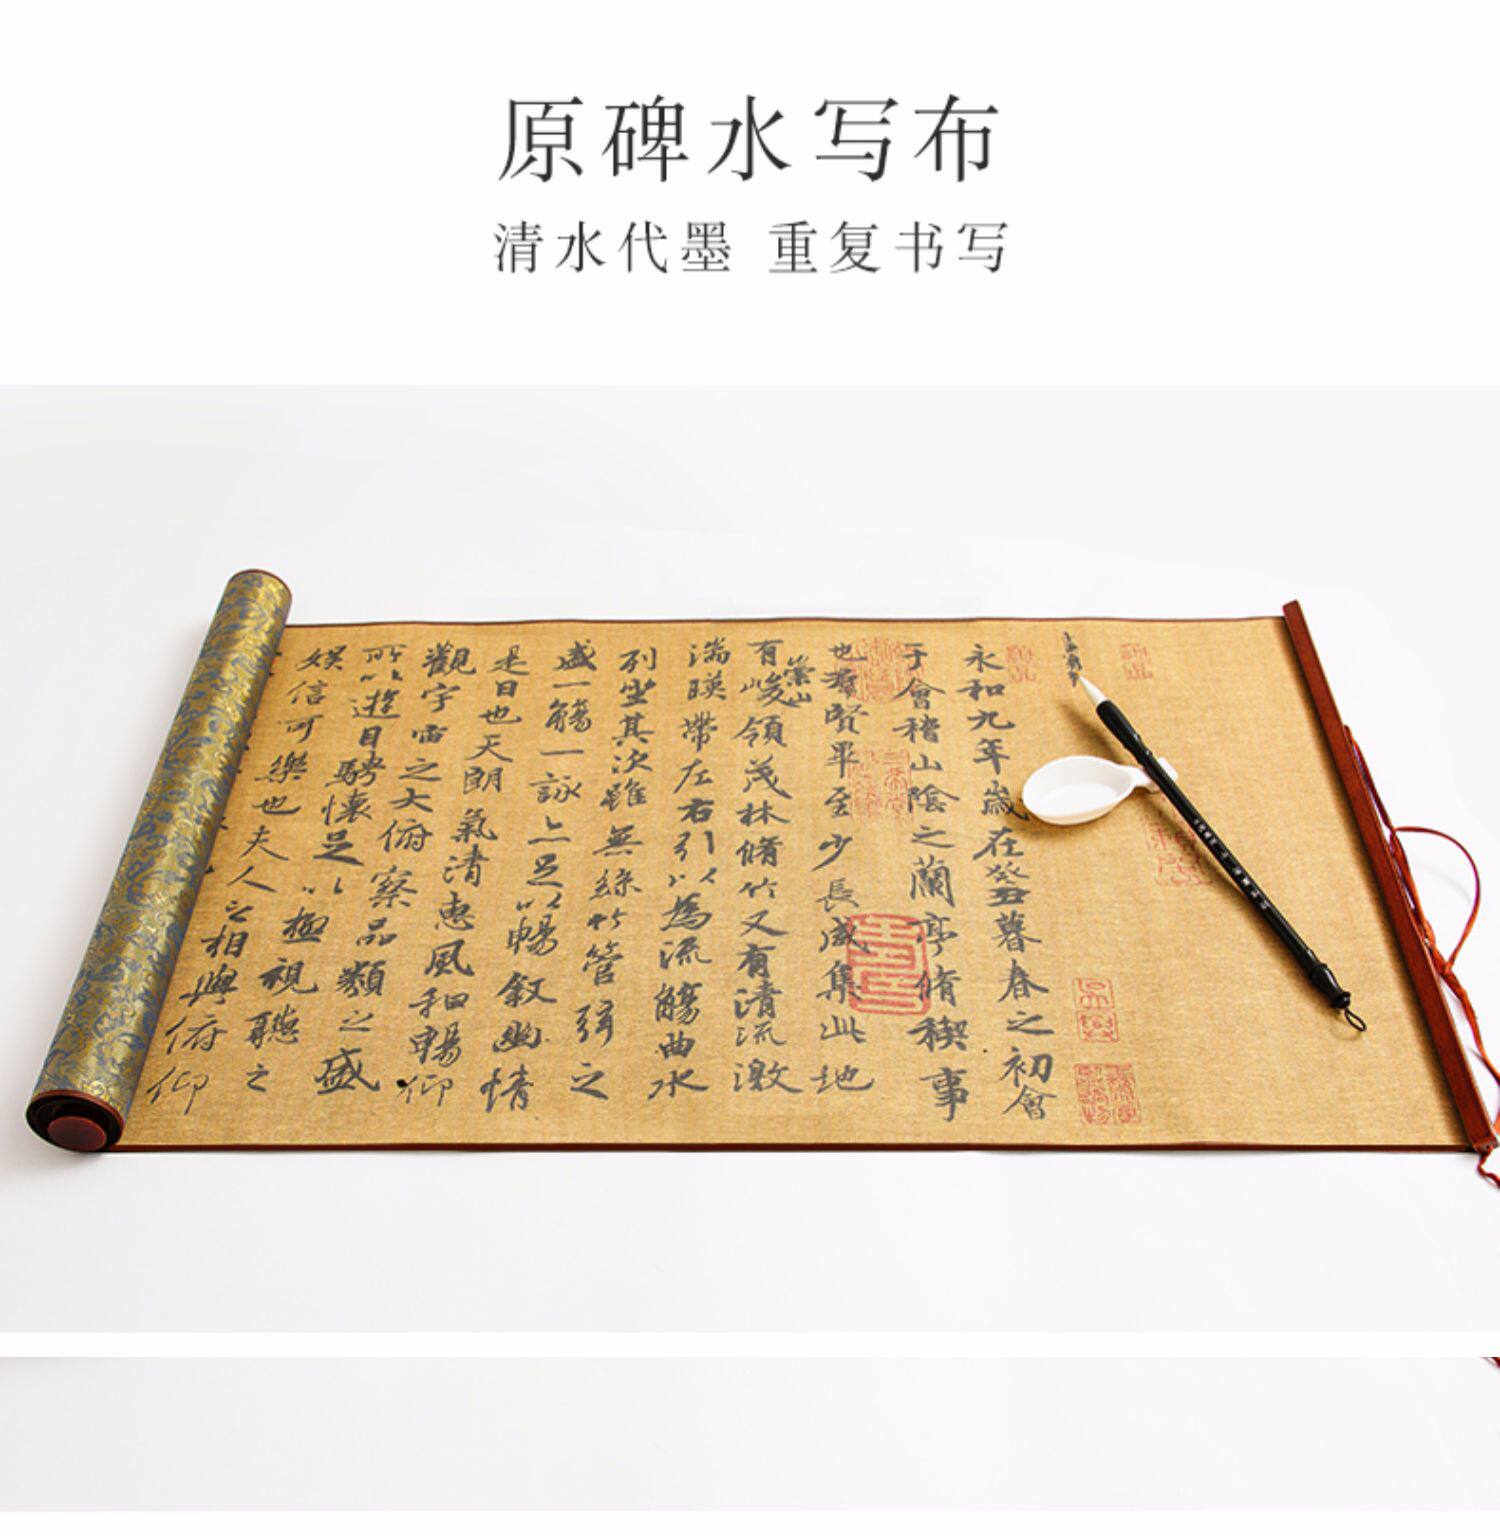 原碑水写布
清水代墨 重复书写
永和九年歲在癸丑暮春之初會
于會稽山陰之蘭亭脩稧事
也羣賢畢至少長咸集此地
有崇山峻領茂林脩竹又有清流激
湍暎帶左右引以為流觴曲水
列坐其次雖無絲竹管弦之
盛一觴一詠亦足以暢敘幽情
是日也天朗氣清惠風和暢仰
觀宇宙之大俯察品類之盛
所以遊目騁懷足以極視聽之
娛信可樂也夫人之相與俯仰